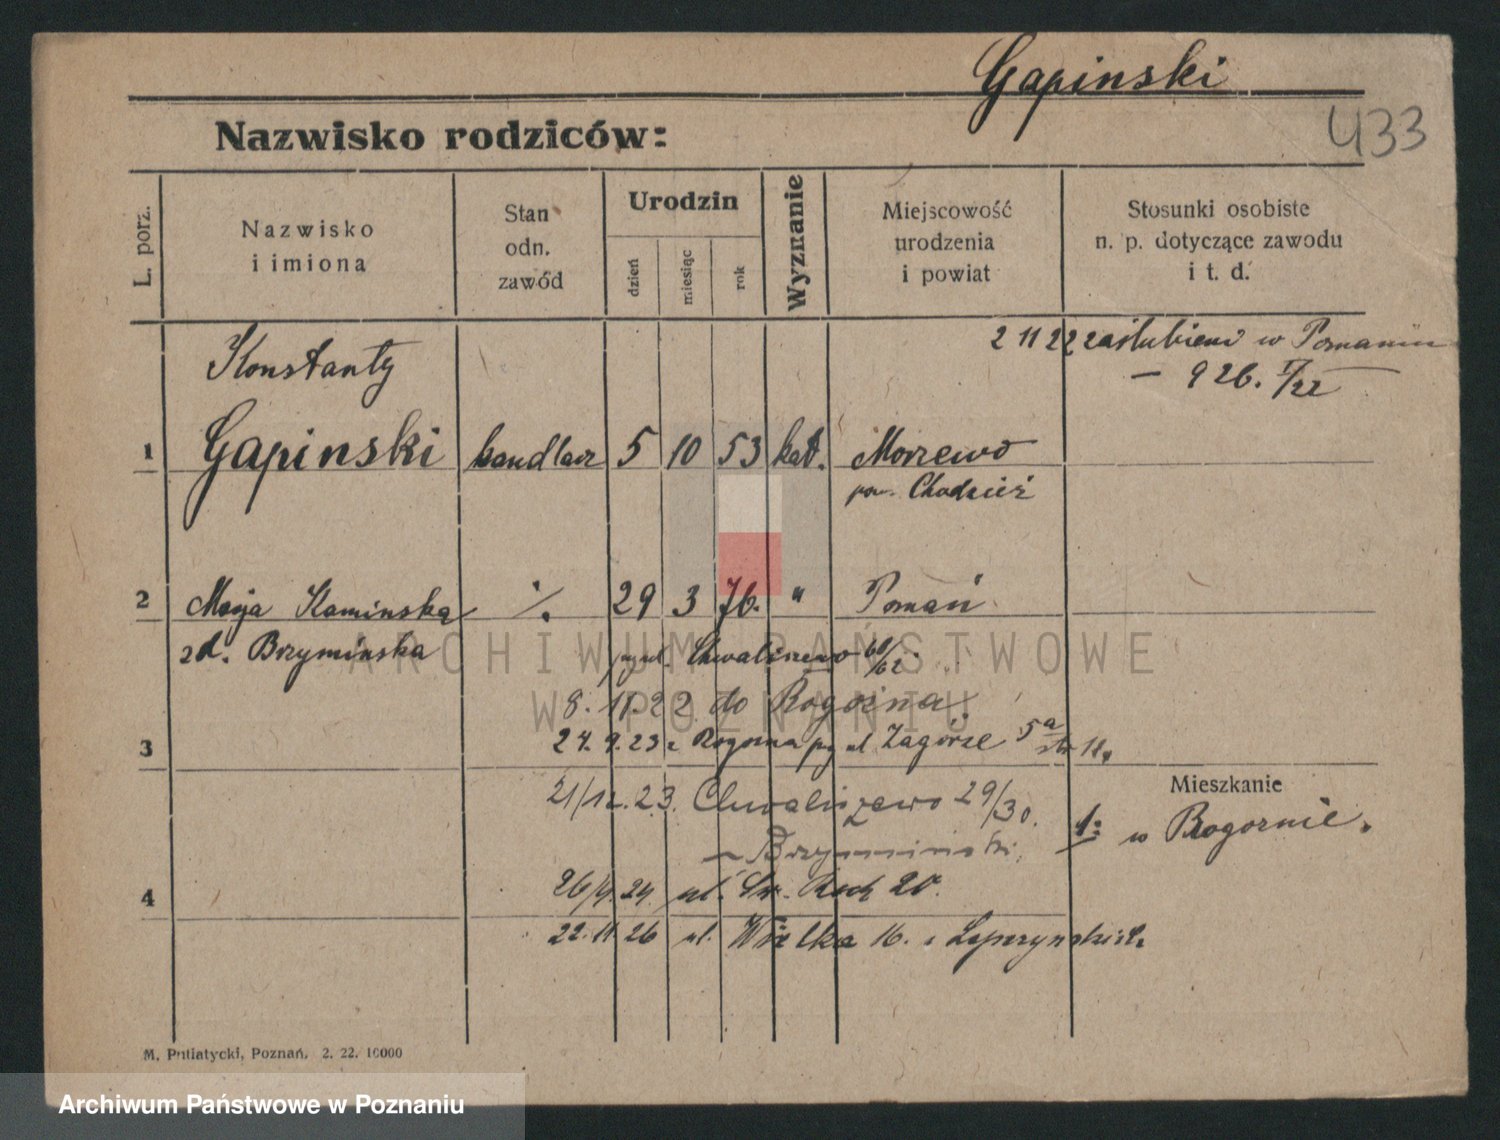 Gapinski
433
Nazwisko rodziców:
L. porz.
Nazwisko
i imiona
Stan
odn.
zawód
Urodzin
dzień
miesiąc
rok
Wyznanie
Miejscowość
urodzenia
i powiat
Stosunki osobiste
n. p. dotyczące zawodu
i t. d.
2 11 22 zaślubieni w Poznaniu
— 926. I/22
Konstanty
1 Gapinski handlarz 5 10 53 kat. Morzewo
pow. Chodzież
2 Marja Kaminska ./. 29 3 76. " Poznań
zd. Brzyminska Chwaliszewo 60/62.
8. 11. 22 do Rogoźna
3 27. 9. 23 z Rogozna ul Zagórze 5a
21/12. 23. Chwaliszewo 29/30.
Mieszkanie
1: w Rogoznie.
Brzyminski,
4 26/4. 24. ul. Św. Roch 20.
22. 11. 26 ul. Wielka 16.
M. Putiatycki, Poznań. 2. 22. 10000
ARCHIWUM PAŃSTWOWE
W POZNANIU
Archiwum Państwowe w Poznaniu